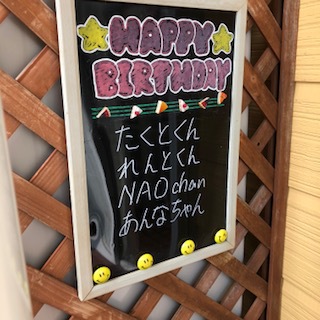 HAPPY
BIRTHDAY
たくとくん
れんとくん
NAOchan
あんなちゃん